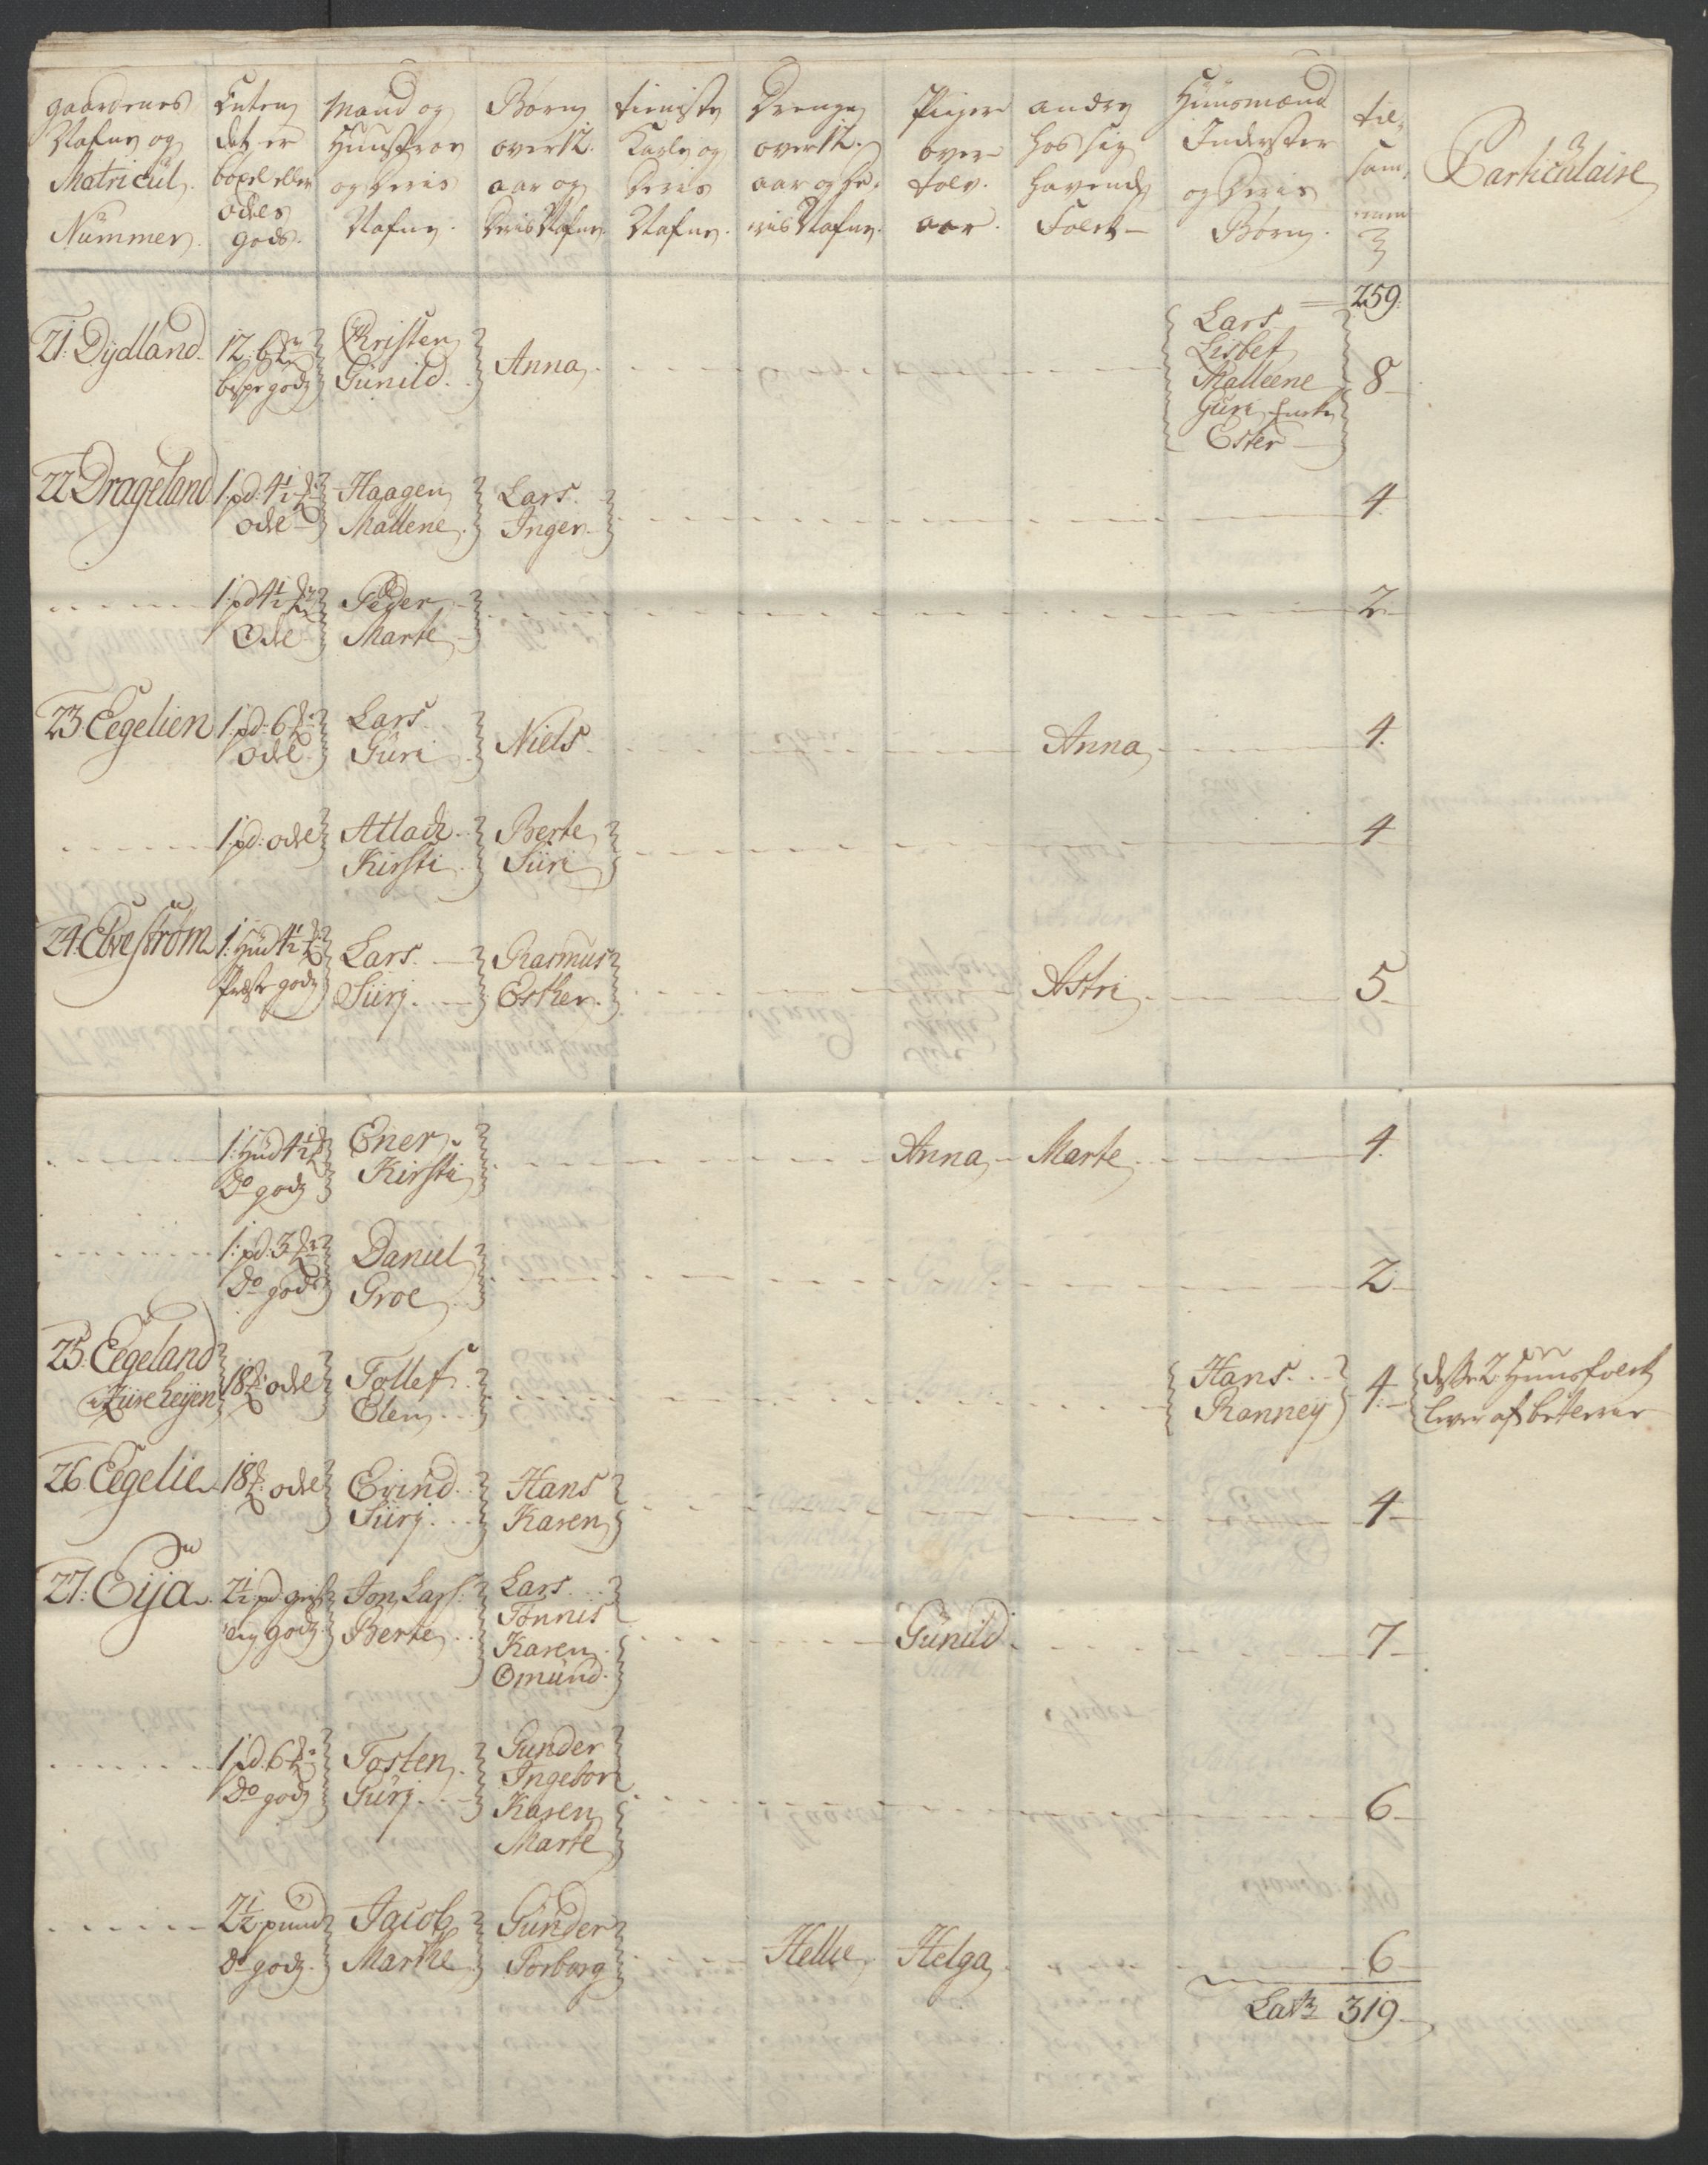 Gaardenes
Nafne og
Matricul
Nummer.
Enten
det er
bøxel eller
odels
gods.
Mand og
Huustroe
og deris
Nafne.
Børn
over 12.
aar og
deris Nafne.
tieniste
Karle og
deris
Nafne.
Drenge
over 12.
aar og de-
ris Nafne.
Piiger
over
tolv.
aar.
andre
hos sig
havende
Folck
Huusmænd
Inderster
og deris
Børn.
til-
sam-
men
Particulaire
259.
21. Dydland
12: 
bispe godz
Christen
Gunild
Anna
Lars
Lisbet
Malleene
Guri Encke
Ester
8
22 Drageland
1: pd: 4½
odel
Haagen
Mallene
Lars
Inger
4
1: pd 4½
Odel
Peder
Marte
2
23 Eegelien
1: pd: 6
odel
Lars
Guri
Niels
Anna
4.
1: pd: odel
Atlack
Kirsti
Berte
Siiri
4
24: Elvestrøm
1: Hud 4½
Præste godz
Lars
Siirj
Rasmus
Esther
Astri
5
1: Hud 4½
Do godz
Ener
Kirsti
Anna
Marte
4
1: pd: 3
Do godz
Daniel
Groe
2
25: Eegeland
i Kureheyen
18 odel
Tollef
Elen
Hans
Ranney
4
disse 2 Huusfolck
lever af betlerie
26 Eegelie
18 odel
Evind
Siirj
Hans
Karen
4
27: Eija
2½ pd geist-
lig godz
Jon Lars:
Berte
Lars
Tønnis
Karen
Omund
Gunild
7
1 pd. 6
Do godz
Tosten
Gurj
Gunder
Ingebor
Karen
Marte
6
2½ pund
Do godz
Jacob
Marthe
Gunder
Torborg
Helge
Helga
6
Latz 319